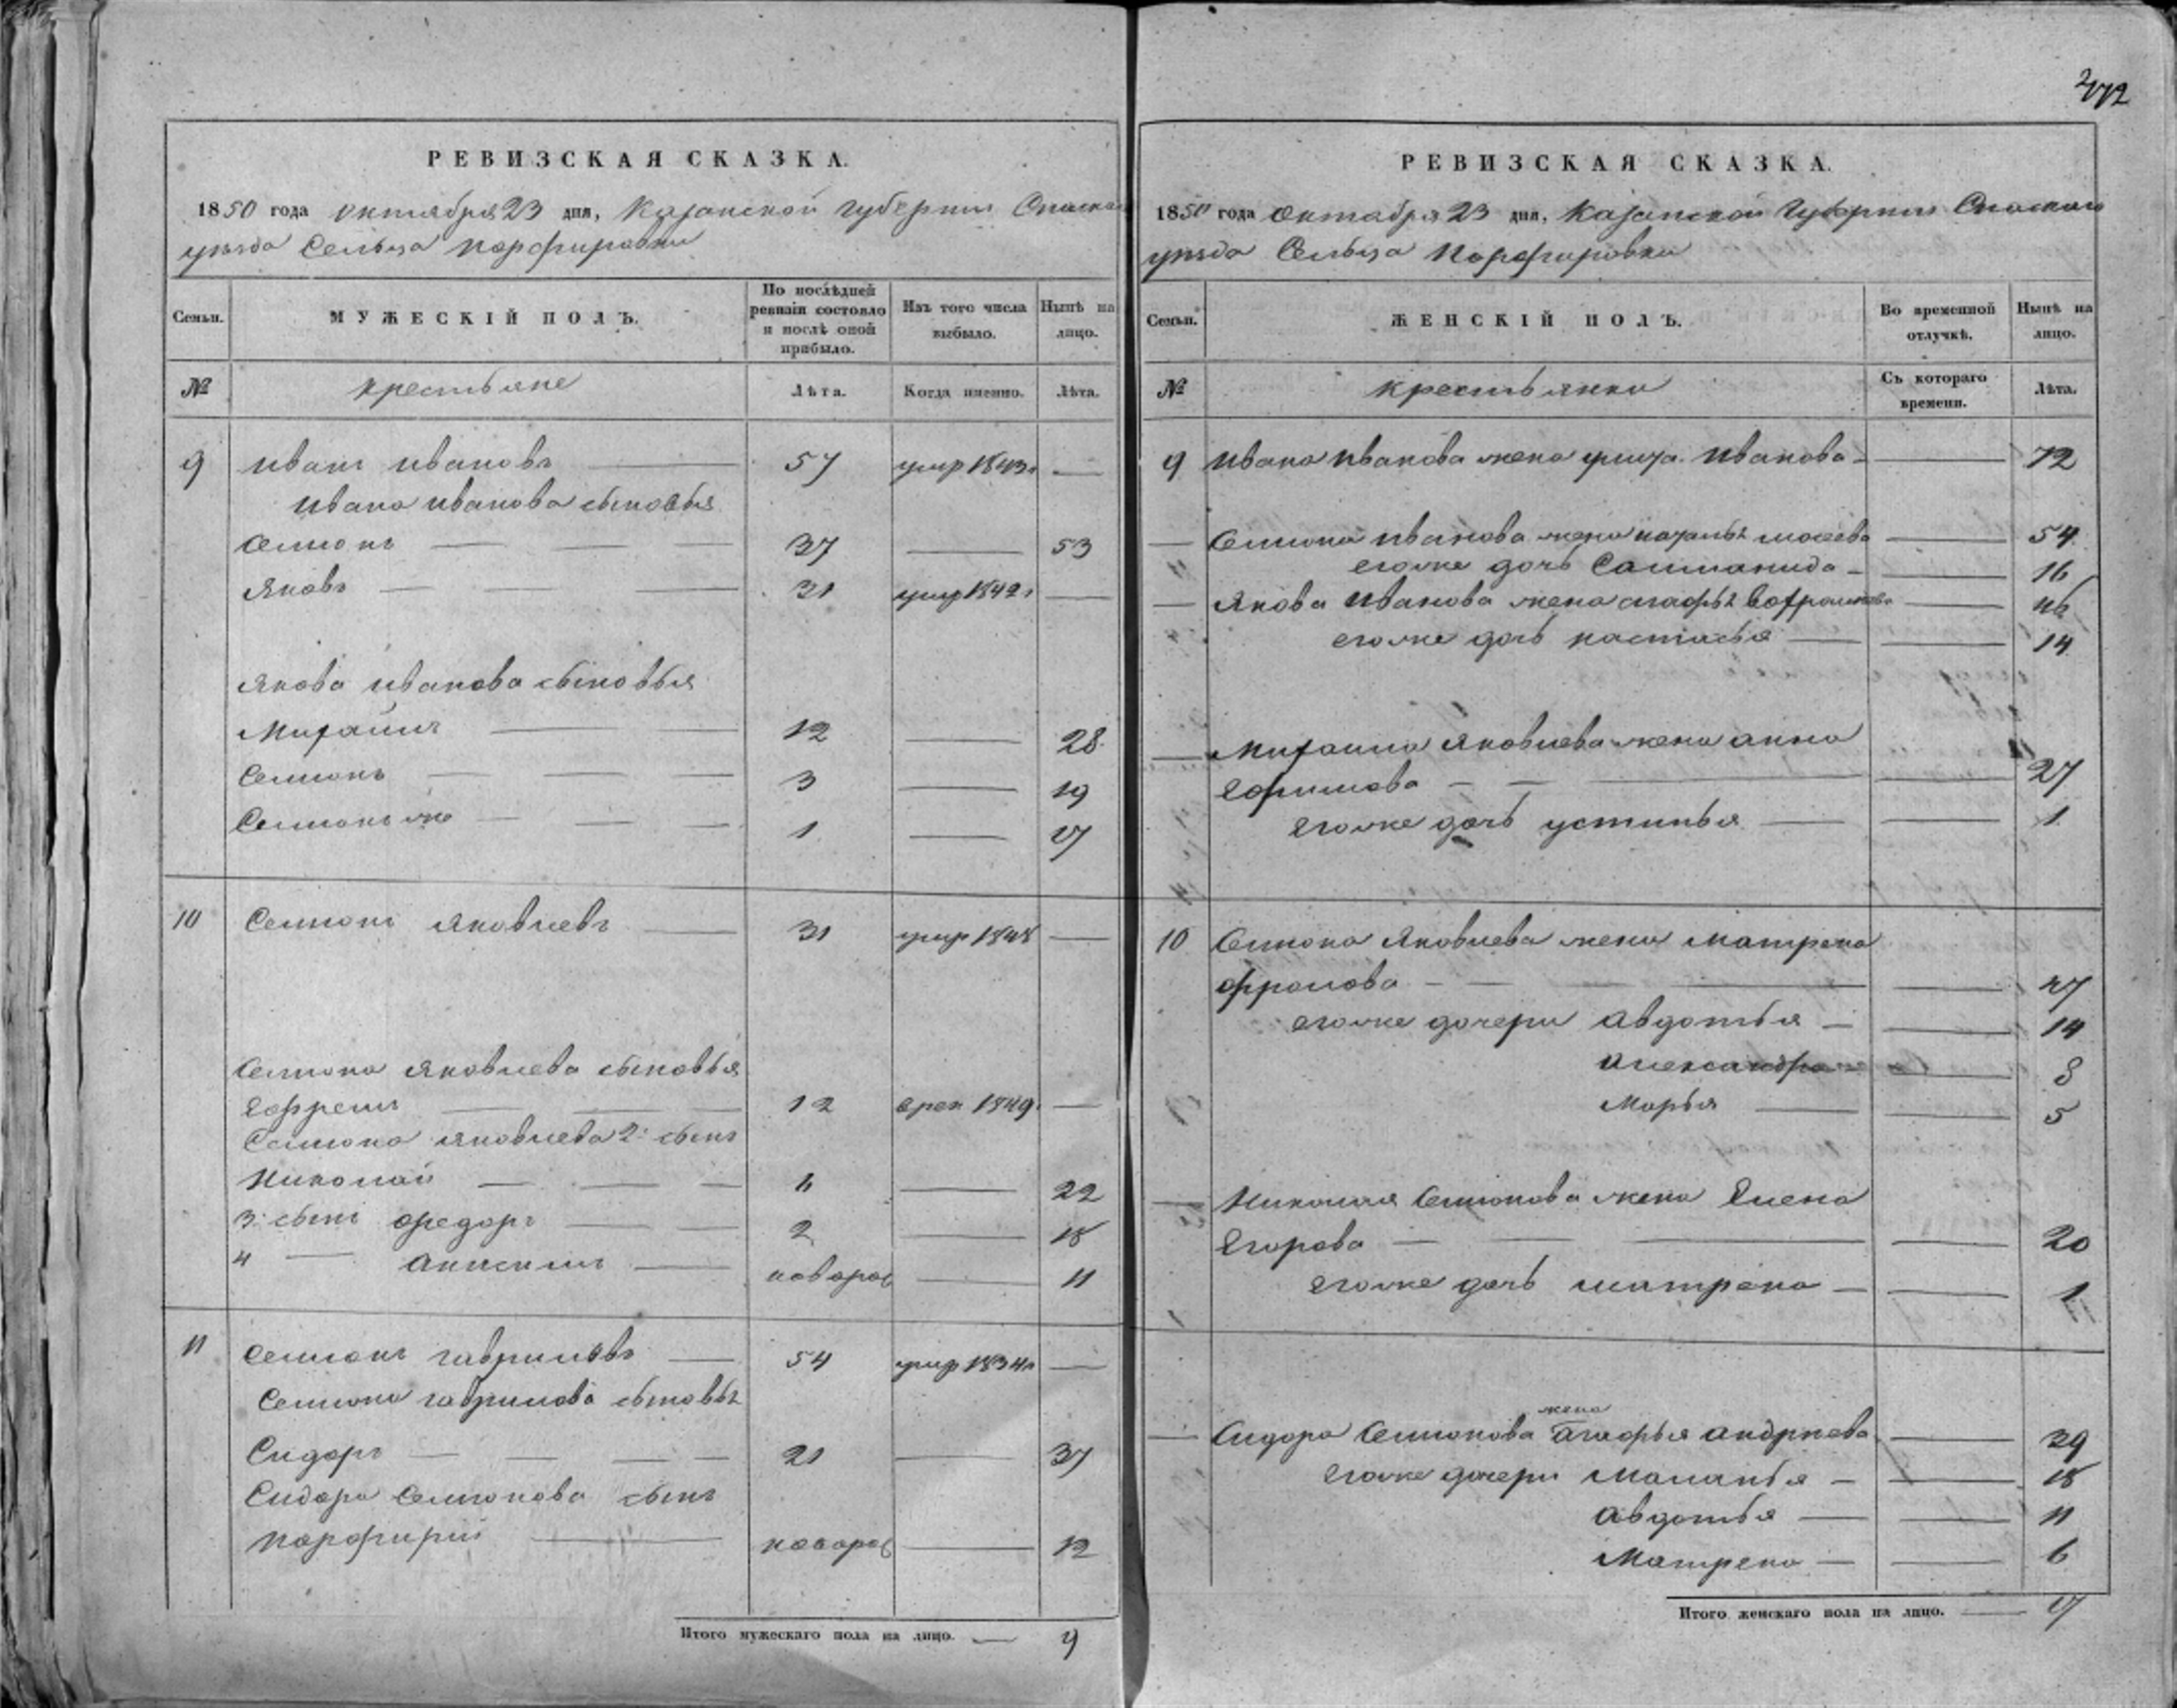 272
РЕВИЗСКАЯ СКАЗКА.
1850 года октября 23 дня, Казанской губернии Спаскаго
уезда Сельца Парфировки
Семьи.
МУЖЕСКІЙ ПОЛЪ.
По послѣдней ревизіи состояло и послѣ оной прибыло.
Изъ того числа выбыло.
Нынѣ на лицо.
№
крестьяне
Лѣта.
Когда именно.
Лѣта.
9 Иванъ Ивановъ 57 умер 1843г —
Ивана Иванова сыновья
Семионъ 37 — 53
Яковъ 31 умер 1842г —
Якова Иванова сыновья
Михайла 12 — 28
Семионъ 3 — 19
Семионъ же 1 — 17
10 Семионъ Яковлевъ 31 умер 1848 —
Семиона Яковлева сыновья
Ефремъ 12 1849. —
Семиона Яковлева 2й сынъ
Николай 6 — 22
3й сынъ Федоръ 2 — 18
4 — Анисимъ новорож — 11
11 Семионъ Гавриловъ 54 умер 1834г —
Семиона Гаврилова сыновья
Сидоръ 21 — 37
Сидора Семионова сынъ
Парфирий новорож — 12
Итого мужескаго пола на лицо. — 9
РЕВИЗСКАЯ СКАЗКА.
1850 года октября 23 дня, Казанской губернии Спаскаго
уезда Сельца Парфировки
Семьи.
ЖЕНСКІЙ ПОЛЪ.
Во временной отлучкѣ.
Нынѣ на лицо.
№
крестьянки
Съ котораго времени.
Лѣта.
9 Ивана Иванова жена Иванова — 72
Семиона Иванова жена — 54
его же дочь — 16
Якова Иванова жена — 46
его же дочь Настасья — 14
Михаила Яковлева жена Анна
Ефимова — 27
Его же дочь Устинья — 1
10 Семиона Яковлева жена Матрена
Фролова — 47
его же дочери Авдотья — 14
Александра — 8
Марья — 5
Николая Семионова жена Елена
Егорова — 20
Его же дочь Матрена — 1
Сидора Семионова жена Агафья Андреева — 39
Его же дочери Маланья — 18
Авдотья — 11
Матрена — 6
Итого женскаго пола на лицо. — 17